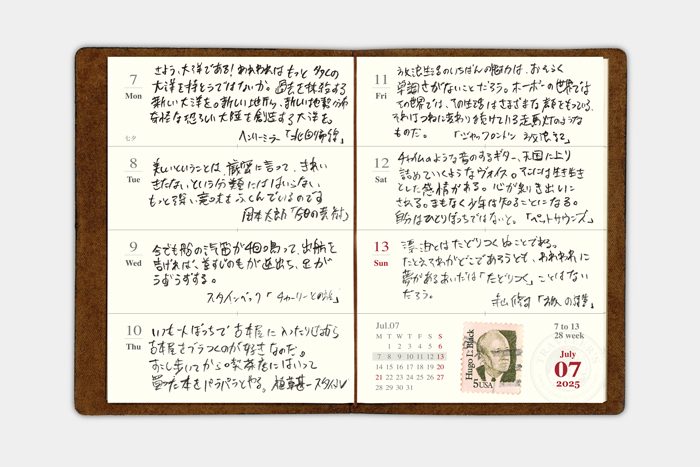 7
Mon
さよう、大洋である！われわれはもっと多くの
大洋を持とうではないか。過去を抹殺する
新しい大洋を。新しい地形、新しい地質
を創造する大洋を。
七夕
ヘンリーミラー「北回帰線」
8
Tue
美しいということは、厳密に言って、きれい
きたない、という分類にはいらない、
もっと深い意味をふくんでいるのです
岡本太郎「今日の芸術」
9
Wed
今でも船の汽笛が4回鳴って、出航を
告げれば、首すじのもが逆立ち、足が
うずうずする。
スタインベック「チャーリーとの旅」
10
Thu
いつも一人ぼっちで古本屋に入ったり
古本屋をブラつくのが好きなのだ。
すこし歩いてから喫茶店にはいって
買った本をパラパラとやる。植草甚一スタイル
11
Fri
放浪生活のいちばんの魅力は、おそらく
単調さがないことだろう。ホーボーの世界では
その生活はさまざまな顔をもっている、
それはつねに変わり続けている走馬灯のような
ものだ。「ジャックロンドン放浪記」
12
Sat
チャイムのような音のするギター、天国に上り
詰めていくようなヴォイス。そこには生き生き
とした感情がある。心が剥き出しに
される。まもなく少年は知ることになる。
自分はひとりぼっちではないと。「ペットサウンズ」
13
Sun
漂泊とはたどりつくぬことである。
たとえそれがどこであろうとも、われわれに
夢があるあいだは「たどりつく」ことはない
だろう。
寺山修司「旅の詩集」
Jul.07
M T W T F S S
1 2 3 4 5 6
7 8 9 10 11 12 13
14 15 16 17 18 19 20
21 22 23 24 25 26 27
28 29 30 31
Hugo L. Black
5USA
7 to 13
28 week
July
07
2025